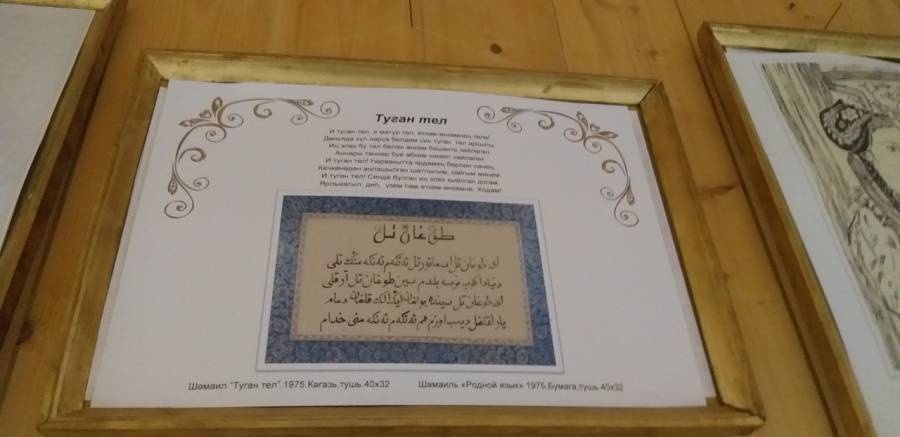 Туган тел
И туган тел, и матур тел, әткәм-әнкәмнең теле!
Дөньяда күп нәрсә белдем син туган тел аркылы.
Иң элек бу тел белән әнкәм бишектә көйләгән,
Аннары төннәр буе әбкәм хикәят сөйләгән.
И туган тел! Һәрвакытта ярдәмең берлән синең,
Кечкенәдән аңлашылган шатлыгым, кайгым минем.
И туган тел! Синдә булган иң элек кыйлган догам:
Ярлыкагыл, дип, үзем һәм әткәм-әнкәмне, Ходам!
طوغان تل
ای طوغان تل ای ماتور تل ئەتكەم ئەنكەمنڭ تلی
دنیادا كوب نرسە بلدم سین طوغان تل آرقلی
ای طوغان تل سیندە بولغان ایڭ الك قلغان دعام
یارلقاغل دیب اوزم هم ئەتكەم ئەنكەمنی خدام
Шәмаил “Туган тел”.1975.Кәгазь,тушь.40х32
Шамаиль «Родной язык» 1975.Бумага,тушь.40х32